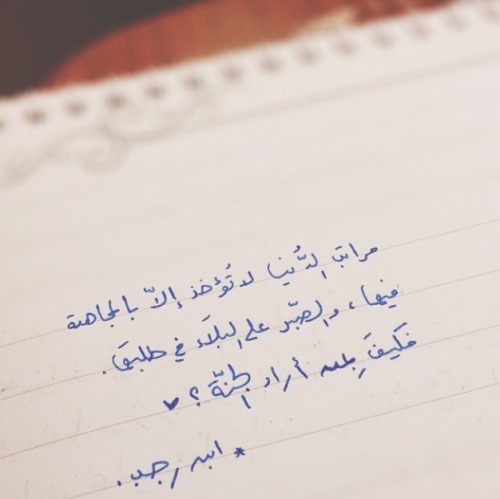 مراتب الدُّنيا لا تُؤخذ إلاّ بالمجاهدة
فيها، والصبّر على البلاَء في طلبهَا.
فكيفَ بمن أراد الجنّة ؟ ♥
* ابن رجب.